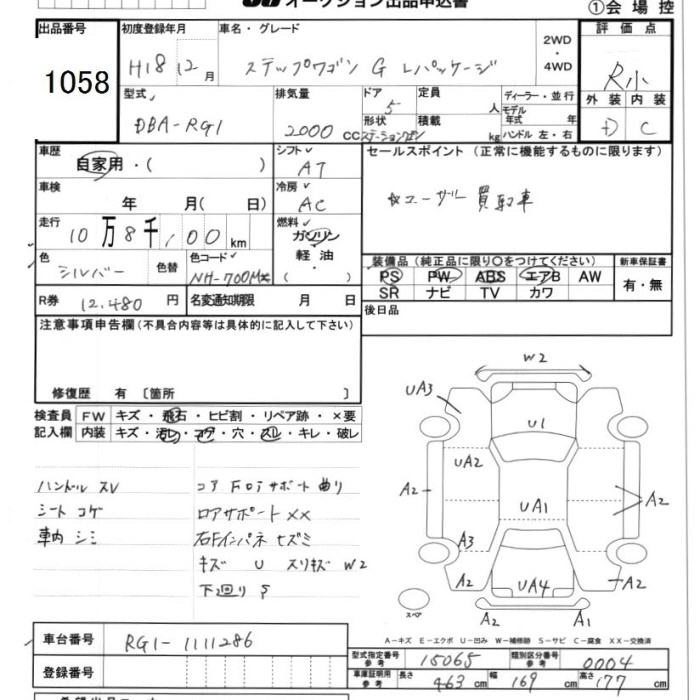 オークション出品申込書
①会場控
出品番号 初度登録年月 車名・グレード 2WD・4WD 評価点
1058 H18 12月 ステップワゴン G Lパッケージ R小
型式 排気量 ドア 5 定員 人 ディーラー・並行 外装 内装
DBA-RG1 2000cc 形状 ステーションワゴン 積載 kg モデル年式 年 ハンドル 左・右 D C
車歴 自家用・( ) シフト AT セールスポイント(正常に機能するものに限ります)
車検 年 月( 日) 冷房 AC ☆ユーザー買取車
走行 10万8千,00km 燃料 ガソリン 軽油・( )
色 シルバー 色替 色コード NH-700M× 装備品(純正品に限り○をつけてください) 新車保証書
PS PW ABS エアB AW 有・無
SR ナビ TV カワ
R券 12,480円 名変通知期限 月 日 後日品
注意事項申告欄(不具合内容等は具体的に記入して下さい)
修復歴 有 〔箇所 〕
検査員 FW キズ・飛石・ヒビ割・リペア跡・×要
記入欄 内装 キズ・汚れ・コゲ・穴・スレ・キレ・破レ
ハンドル スレ
シート コゲ
車内 シミ
コア Fロアサポート曲り
ロアサポート××
右Fインパネ ヒズミ
キズ U スリキズ W2
下廻り S
W2
UA3
U1
UA2
A2
UA1
A2
A3
A2
UA4
A2
スペア
A2
A1
A-キズ E-エクボ U-凹み W-補修跡 S-サビ C-腐食 XX-交換済
車台番号 RG1-1111286
登録番号
型式指定番号 参考 15065 類別区分番号 参考 0004
車庫証明用 参考 長さ 463cm 幅 169cm 高さ 177cm